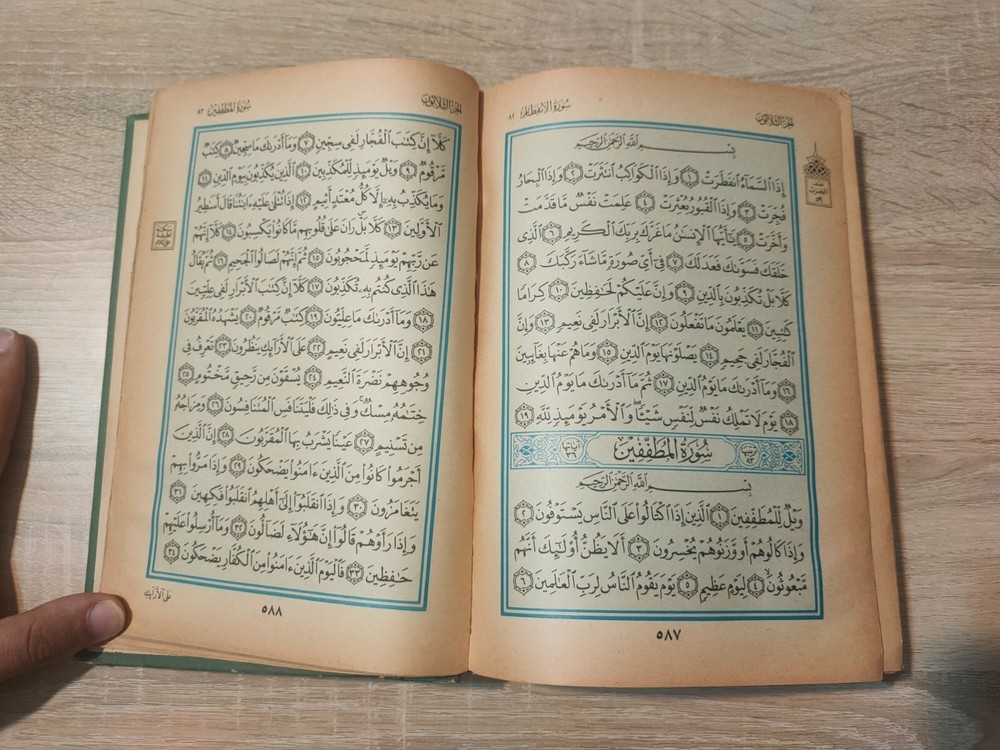 الجُزءُ الثَّلاثُونَ
سُورَةُ الانفِطَار ٨٢
بِسْمِ ٱللَّهِ ٱلرَّحْمَٰنِ ٱلرَّحِيمِ
إِذَا ٱلسَّمَآءُ ٱنفَطَرَتْ ١ وَإِذَا ٱلْكَوَاكِبُ ٱنتَثَرَتْ ٢ وَإِذَا ٱلْبِحَارُ
فُجِّرَتْ ٣ وَإِذَا ٱلْقُبُورُ بُعْثِرَتْ ٤ عَلِمَتْ نَفْسٌ مَّا قَدَّمَتْ
وَأَخَّرَتْ ٥ يَٰٓأَيُّهَا ٱلْإِنسَٰنُ مَا غَرَّكَ بِرَبِّكَ ٱلْكَرِيمِ ٦ ٱلَّذِى
خَلَقَكَ فَسَوَّىٰكَ فَعَدَلَكَ ٧ فِىٓ أَىِّ صُورَةٍ مَّا شَآءَ رَكَّبَكَ ٨
كَلَّا بَلْ تُكَذِّبُونَ بِٱلدِّينِ ٩ وَإِنَّ عَلَيْكُمْ لَحَٰفِظِينَ ١٠ كِرَامًا
كَٰتِبِينَ ١١ يَعْلَمُونَ مَا تَفْعَلُونَ ١٢ إِنَّ ٱلْأَبْرَارَ لَفِى نَعِيمٍ ١٣ وَإِنَّ
ٱلْفُجَّارَ لَفِى جَحِيمٍ ١٤ يَصْلَوْنَهَا يَوْمَ ٱلدِّينِ ١٥ وَمَا هُمْ عَنْهَا بِغَآئِبِينَ
١٦ وَمَآ أَدْرَىٰكَ مَا يَوْمُ ٱلدِّينِ ١٧ ثُمَّ مَآ أَدْرَىٰكَ مَا يَوْمُ ٱلدِّينِ
١٨ يَوْمَ لَا تَمْلِكُ نَفْسٌ لِّنَفْسٍ شَيْـًٔا ۖ وَٱلْأَمْرُ يَوْمَئِذٍ لِّلَّهِ ١٩
ترتيبها ٨٣ سُورَةُ المُطَفِّفِينَ آياتها ٣٦
بِسْمِ ٱللَّهِ ٱلرَّحْمَٰنِ ٱلرَّحِيمِ
وَيْلٌ لِّلْمُطَفِّفِينَ ١ ٱلَّذِينَ إِذَا ٱكْتَالُوا۟ عَلَى ٱلنَّاسِ يَسْتَوْفُونَ ٢
وَإِذَا كَالُوهُمْ أَو وَّزَنُوهُمْ يُخْسِرُونَ ٣ أَلَا يَظُنُّ أُو۟لَٰٓئِكَ أَنَّهُم
مَّبْعُوثُونَ ٤ لِيَوْمٍ عَظِيمٍ ٥ يَوْمَ يَقُومُ ٱلنَّاسُ لِرَبِّ ٱلْعَٰلَمِينَ ٦
٥٨٧
الجُزءُ الثَّلاثُونَ
سُورَةُ المُطَفِّفِين ٨٣
كَلَّآ إِنَّ كِتَٰبَ ٱلْفُجَّارِ لَفِى سِجِّينٍ ٧ وَمَآ أَدْرَىٰكَ مَا سِجِّينٌ ٨ كِتَٰبٌ
مَّرْقُومٌ ٩ وَيْلٌ يَوْمَئِذٍ لِّلْمُكَذِّبِينَ ١٠ ٱلَّذِينَ يُكَذِّبُونَ بِيَوْمِ ٱلدِّينِ ١١
وَمَا يُكَذِّبُ بِهِۦٓ إِلَّا كُلُّ مُعْتَدٍ أَثِيمٍ ١٢ إِذَا تُتْلَىٰ عَلَيْهِ ءَايَٰتُنَا قَالَ أَسَٰطِيرُ
ٱلْأَوَّلِينَ ١٣ كَلَّا ۖ بَلْ ۜ رَانَ عَلَىٰ قُلُوبِهِم مَّا كَانُوا۟ يَكْسِبُونَ ١٤ كَلَّآ إِنَّهُمْ
عَن رَّبِّهِمْ يَوْمَئِذٍ لَّمَحْجُوبُونَ ١٥ ثُمَّ إِنَّهُمْ لَصَالُوا۟ ٱلْجَحِيمِ ١٦ ثُمَّ يُقَالُ
هَٰذَا ٱلَّذِى كُنتُم بِهِۦ تُكَذِّبُونَ ١٧ كَلَّآ إِنَّ كِتَٰبَ ٱلْأَبْرَارِ لَفِى عِلِّيِّينَ
١٨ وَمَآ أَدْرَىٰكَ مَا عِلِّيُّونَ ١٩ كِتَٰبٌ مَّرْقُومٌ ٢٠ يَشْهَدُهُ ٱلْمُقَرَّبُونَ
٢١ إِنَّ ٱلْأَبْرَارَ لَفِى نَعِيمٍ ٢٢ عَلَى ٱلْأَرَآئِكِ يَنظُرُونَ ٢٣ تَعْرِفُ فِى
وُجُوهِهِمْ نَضْرَةَ ٱلنَّعِيمِ ٢٤ يُسْقَوْنَ مِن رَّحِيقٍ مَّخْتُومٍ ٢٥
خِتَٰمُهُۥ مِسْكٌ ۚ وَفِى ذَٰلِكَ فَلْيَتَنَافَسِ ٱلْمُتَنَٰفِسُونَ ٢٦ وَمِزَاجُهُۥ
مِن تَسْنِيمٍ ٢٧ عَيْنًا يَشْرَبُ بِهَا ٱلْمُقَرَّبُونَ ٢٨ إِنَّ ٱلَّذِينَ
أَجْرَمُوا۟ كَانُوا۟ مِنَ ٱلَّذِينَ ءَامَنُوا۟ يَضْحَكُونَ ٢٩ وَإِذَا مَرُّوا۟ بِهِمْ
يَتَغَامَزُونَ ٣٠ وَإِذَا ٱنقَلَبُوٓا۟ إِلَىٰٓ أَهْلِهِمُ ٱنقَلَبُوا۟ فَكِهِينَ ٣١
وَإِذَا رَأَوْهُمْ قَالُوٓا۟ إِنَّ هَٰٓؤُلَآءِ لَضَآلُّونَ ٣٢ وَمَآ أُرْسِلُوا۟ عَلَيْهِمْ
حَٰفِظِينَ ٣٣ فَٱلْيَوْمَ ٱلَّذِينَ ءَامَنُوا۟ مِنَ ٱلْكُفَّارِ يَضْحَكُونَ ٣٤
عَلَى ٱلْأَرَآئِكِ
٥٨٨